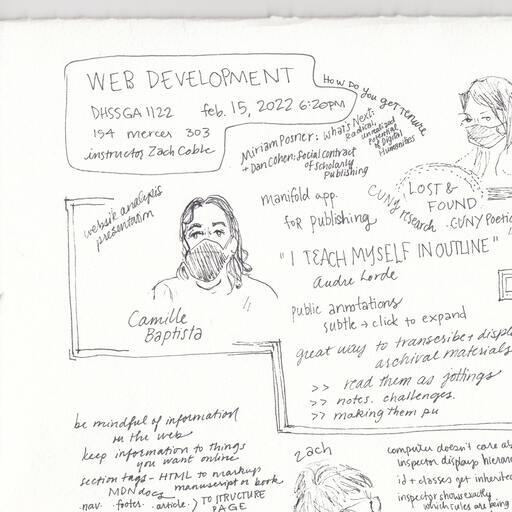 WEB DEVELOPMENT
DHSSGA 1122 feb. 15, 2022 6:20PM
154 mercer 303
instructor Zach Coble
How Do you get tenure
Miriam Posner: What's Next:
Radical,
unrealized
potential
of Digital
Humanities
+ Dan Cohen: Social contract
of scholarly
publishing
manifold app.
for publishing
LOST &
FOUND
CUNY research
CUNY Poetic
"I TEACH MYSELF IN OUTLINE"
Audre Lorde
public annotations
subtle + click to expand
great way to transcribe + displa
archival materials
>> read them as jottings
>> notes. challenges.
>> making them pu
website analysis
presentation
Camille
Baptista
be mindful of information
on the web
keep information to things
you want online
section tags - HTML to markup
MDN docs manuscript or book
·nav· ·footer· ·article· > TO STRUCTURE
PAGE
zach
computer doesn't care a
inspector displays hierar
id + classes get inherite
inspector shows exactly
which rules are being